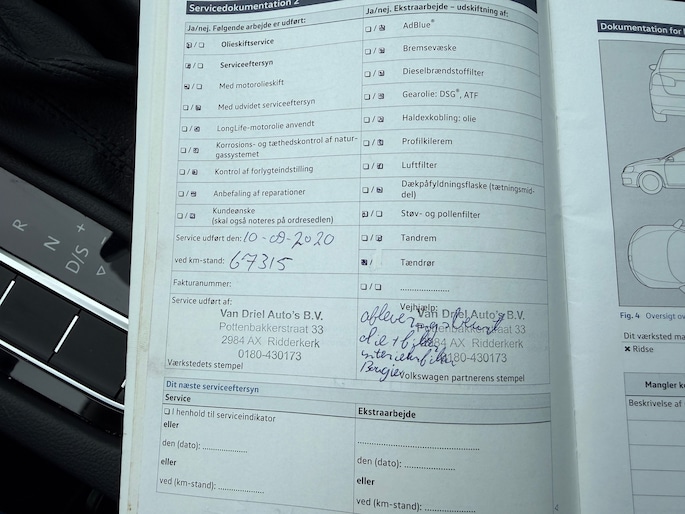 Servicedokumentation 2
Ja/nej. Følgende arbejde er udført:
Olieskiftservice
Serviceeftersyn
Med motorolieskift
Med udvidet serviceeftersyn
LongLife-motorolie anvendt
Korrosions- og tæthedskontrol af natur-
gassystemet
Kontrol af forlygteindstilling
Anbefaling af reparationer
Kundeønske
(skal også noteres på ordresedlen)
Service udført den: 10-09-2020
ved km-stand: 67315
Fakturanummer:
Service udført af:
Van Driel Auto's B.V.
Pottenbakkerstraat 33
2984 AX Ridderkerk
0180-430173
Værkstedets stempel
Ja/nej. Ekstraarbejde – udskiftning af:
AdBlue®
Bremsevæske
Dieselbrændstoffilter
Gearolie: DSG®, ATF
Haldexkobling: olie
Profilkilerem
Luftfilter
Dækpåfyldningsflaske (tætningsmid-
del)
Støv- og pollenfilter
Tandrem
Tændrør
Vejhjælp:
Van Driel Auto's B.V.
Pottenbakkerstraat 33
2984 AX Ridderkerk
0180-430173
Volkswagen partnerens stempel
Dit næste serviceeftersyn
Service
I henhold til serviceindikator
eller
den (dato): ....................
eller
ved (km-stand): ....................
Ekstraarbejde
den (dato): ....................
eller
ved (km-stand): ....................
4
Dokumentation for
Fig. 4 Oversigt
Dit værksted
× Ridse
Mangler
Beskrivelse af
R
N
D/S
+